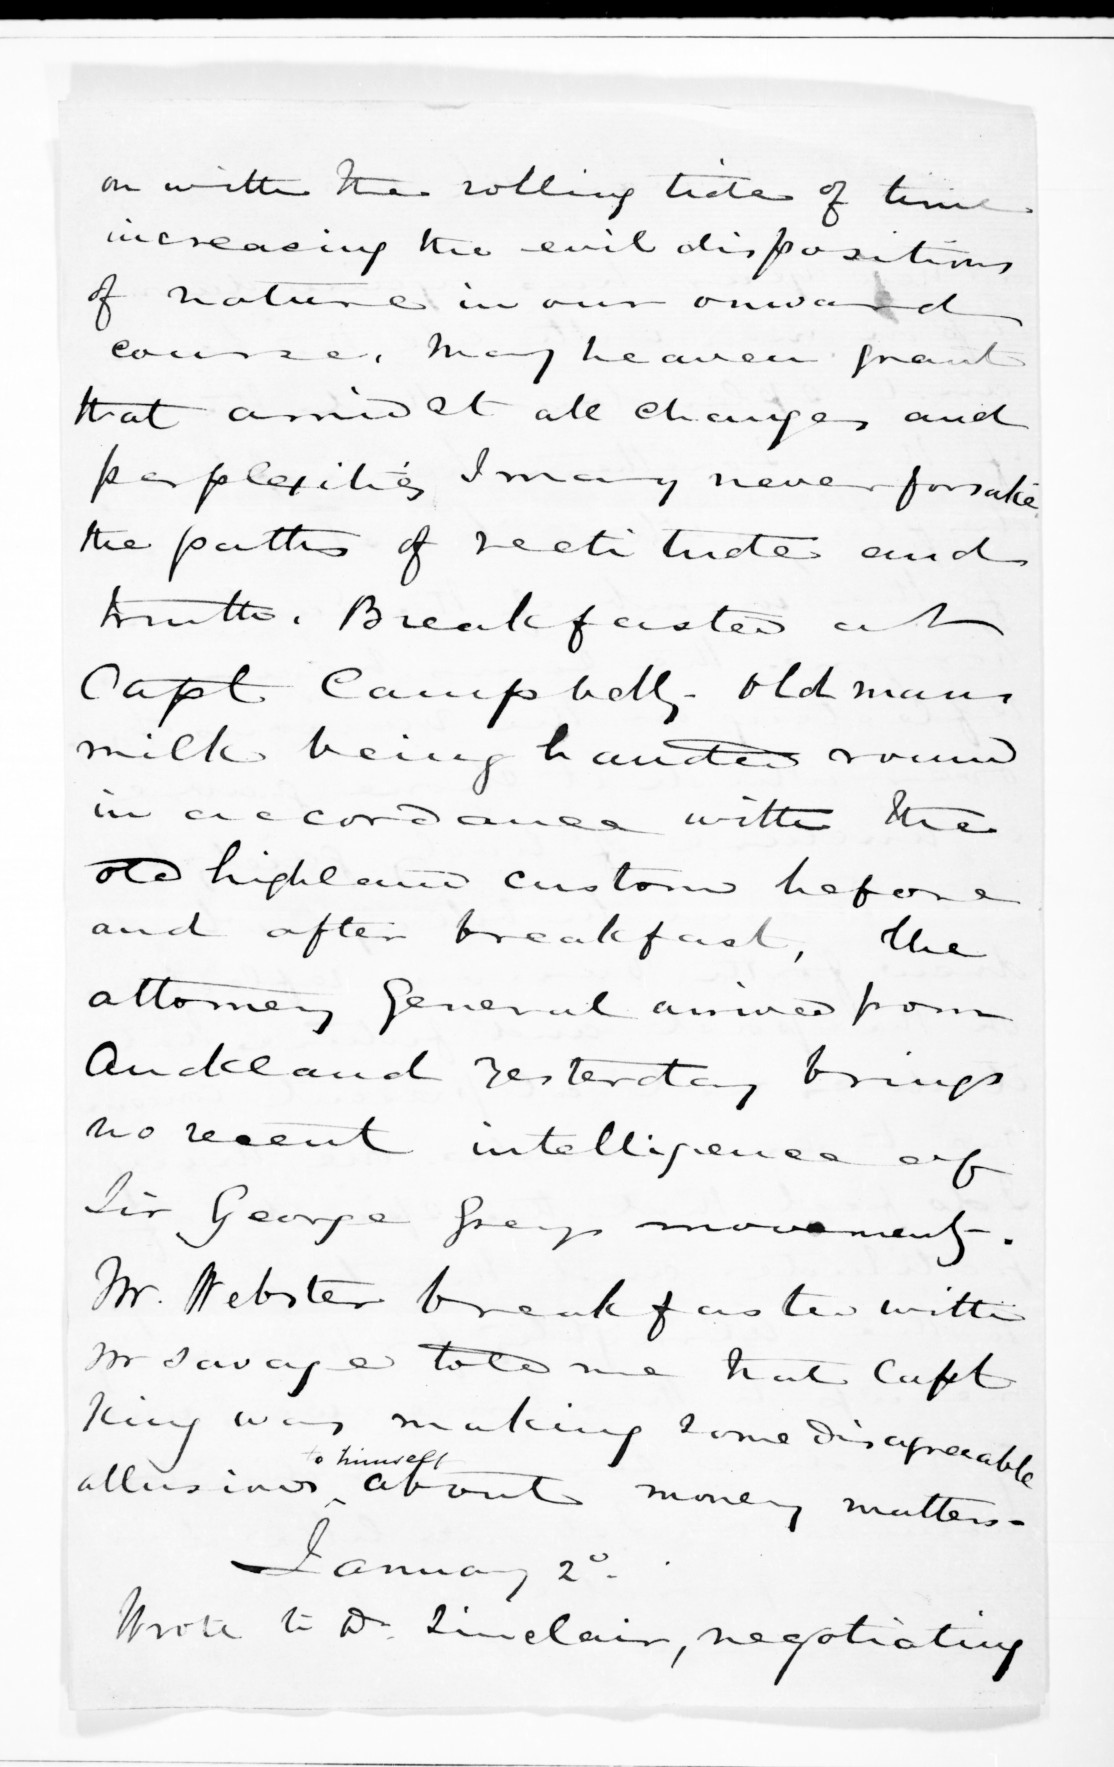 on with the rolling tide of time
increasing the evil dispositions
of nature in our onward
course, may heaven grant
that amidst all changes and
perplexities I may never forsake
the paths of rectitude and
truth. Breakfasted at
Capt Campbells. Old mans
milk being handed round
in accordance with the
old highland custom before
and after breakfast, the
attorney General arrived from
Auckland yesterday brings
no recent intelligence of
Sir George Greys movements.
Mr. Webster breakfasted with
Mr Savage told me that Capt
King was making some disagreeable
allusions to himself about money matters-
January 2º.
Wrote to Dr. Sinclair, negotiating